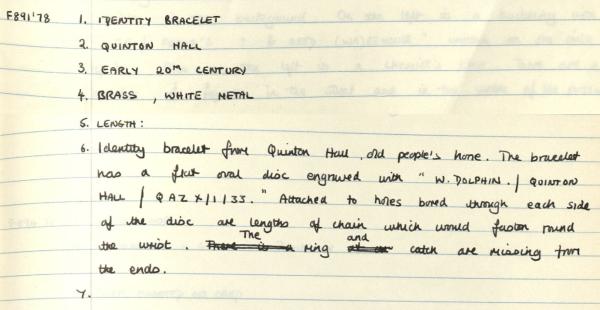 F891'78 1. IDENTITY BRACELET
2. QUINTON HALL
3. EARLY 20TH CENTURY
4. BRASS, WHITE METAL
5. LENGTH:
6. Identity bracelet from Quinton Hall, old people's home. The bracelet
has a flat oval disc engraved with "W. DOLPHIN. / QUINTON
HALL / QAZ X/1/33." Attached to holes bored through each side
of the disc are lengths of chain which would fasten round
the wrist. The ring and catch are missing from
the ends.
7.